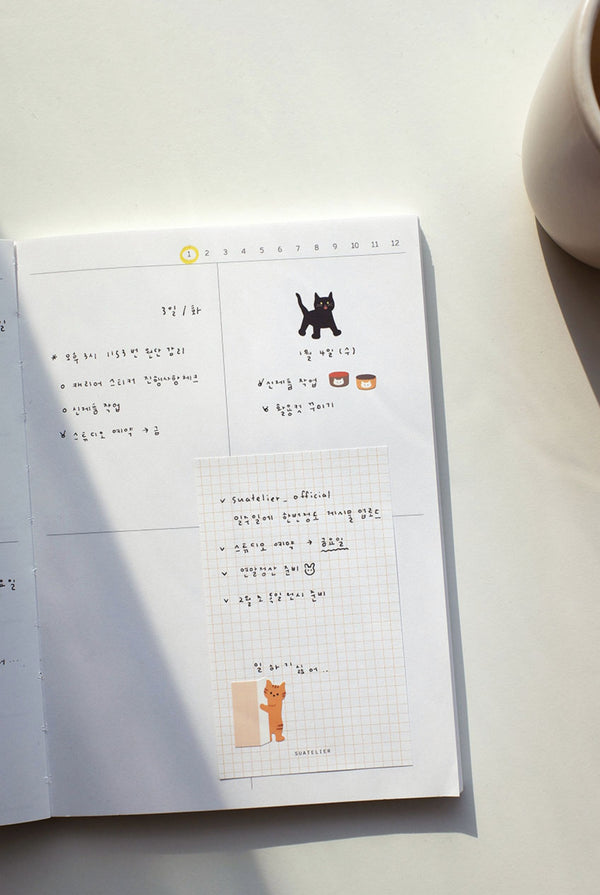 1 2 3 4 5 6 7 8 9 10 11 12
3일 / 화
* 오후 3시 1153번 원단 감리
o 캐리어 스티커 진행사항체크
o 신제품 작업
v 스튜디오 예약 → 금
1월 4일 (수)
v 신제품 작업
v 활용컷 꾸미기
v suatelier_official
일주일에 한번정도 게시물 업로드
v 스튜디오 예약 → 금요일
v 연말정산 준비
v 2월 초 독일전시 준비
일 하기 싫어...
SUATELIER